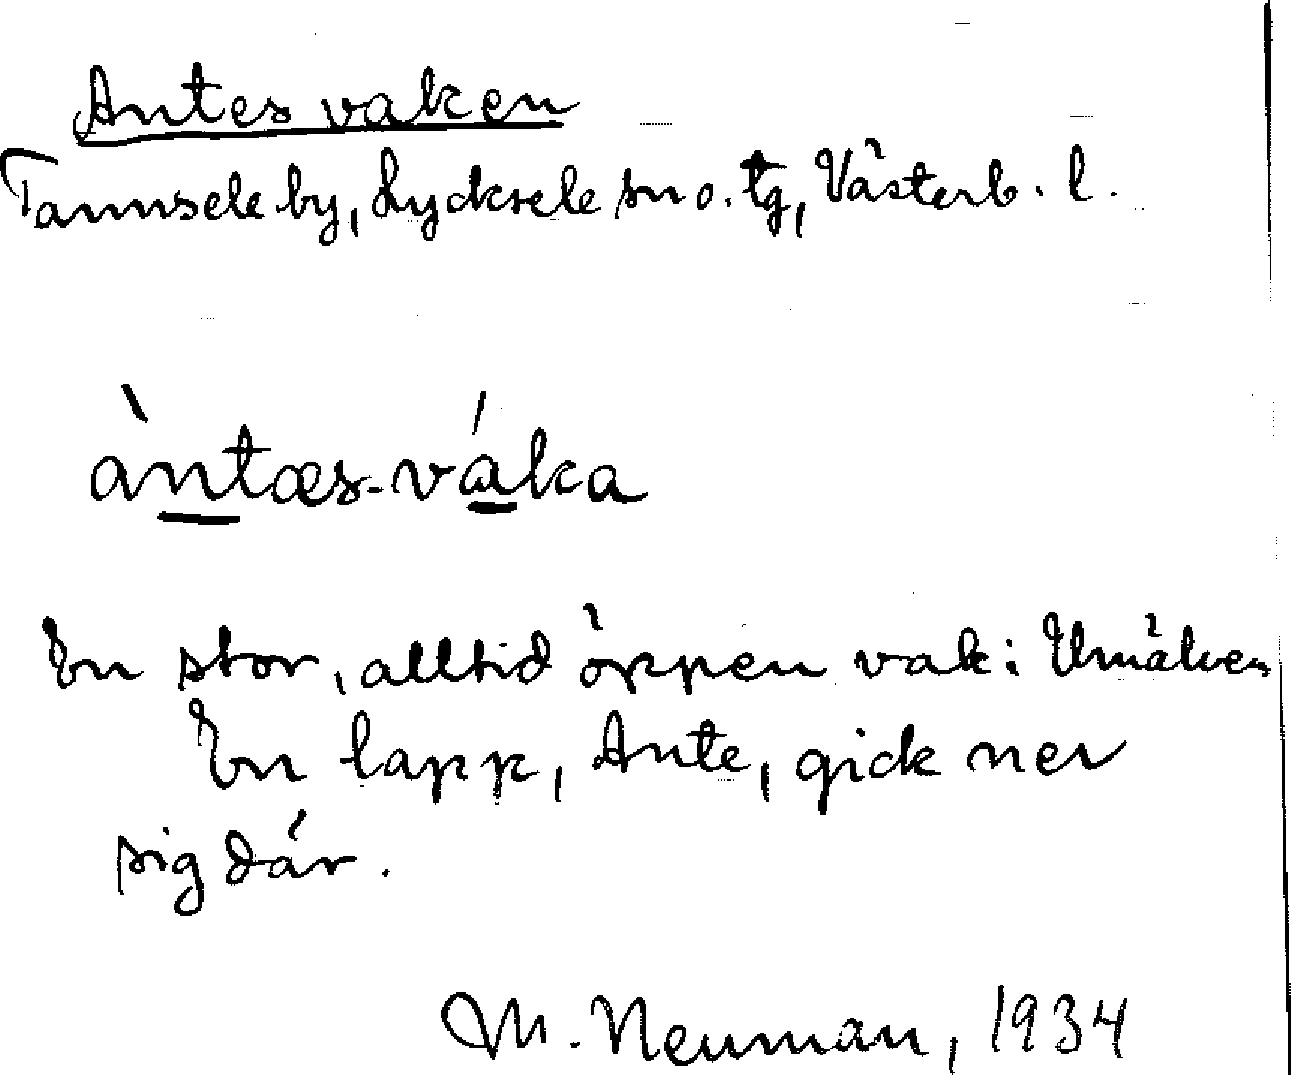 Antes vaken
Tannsele by, Lycksele sn o. tg, Västerb. l.
àntæs-váka
En stor, alltid öppen vak i Umälven
En lapp, Ante, gick ner
sig där.
M. Neuman, 1934